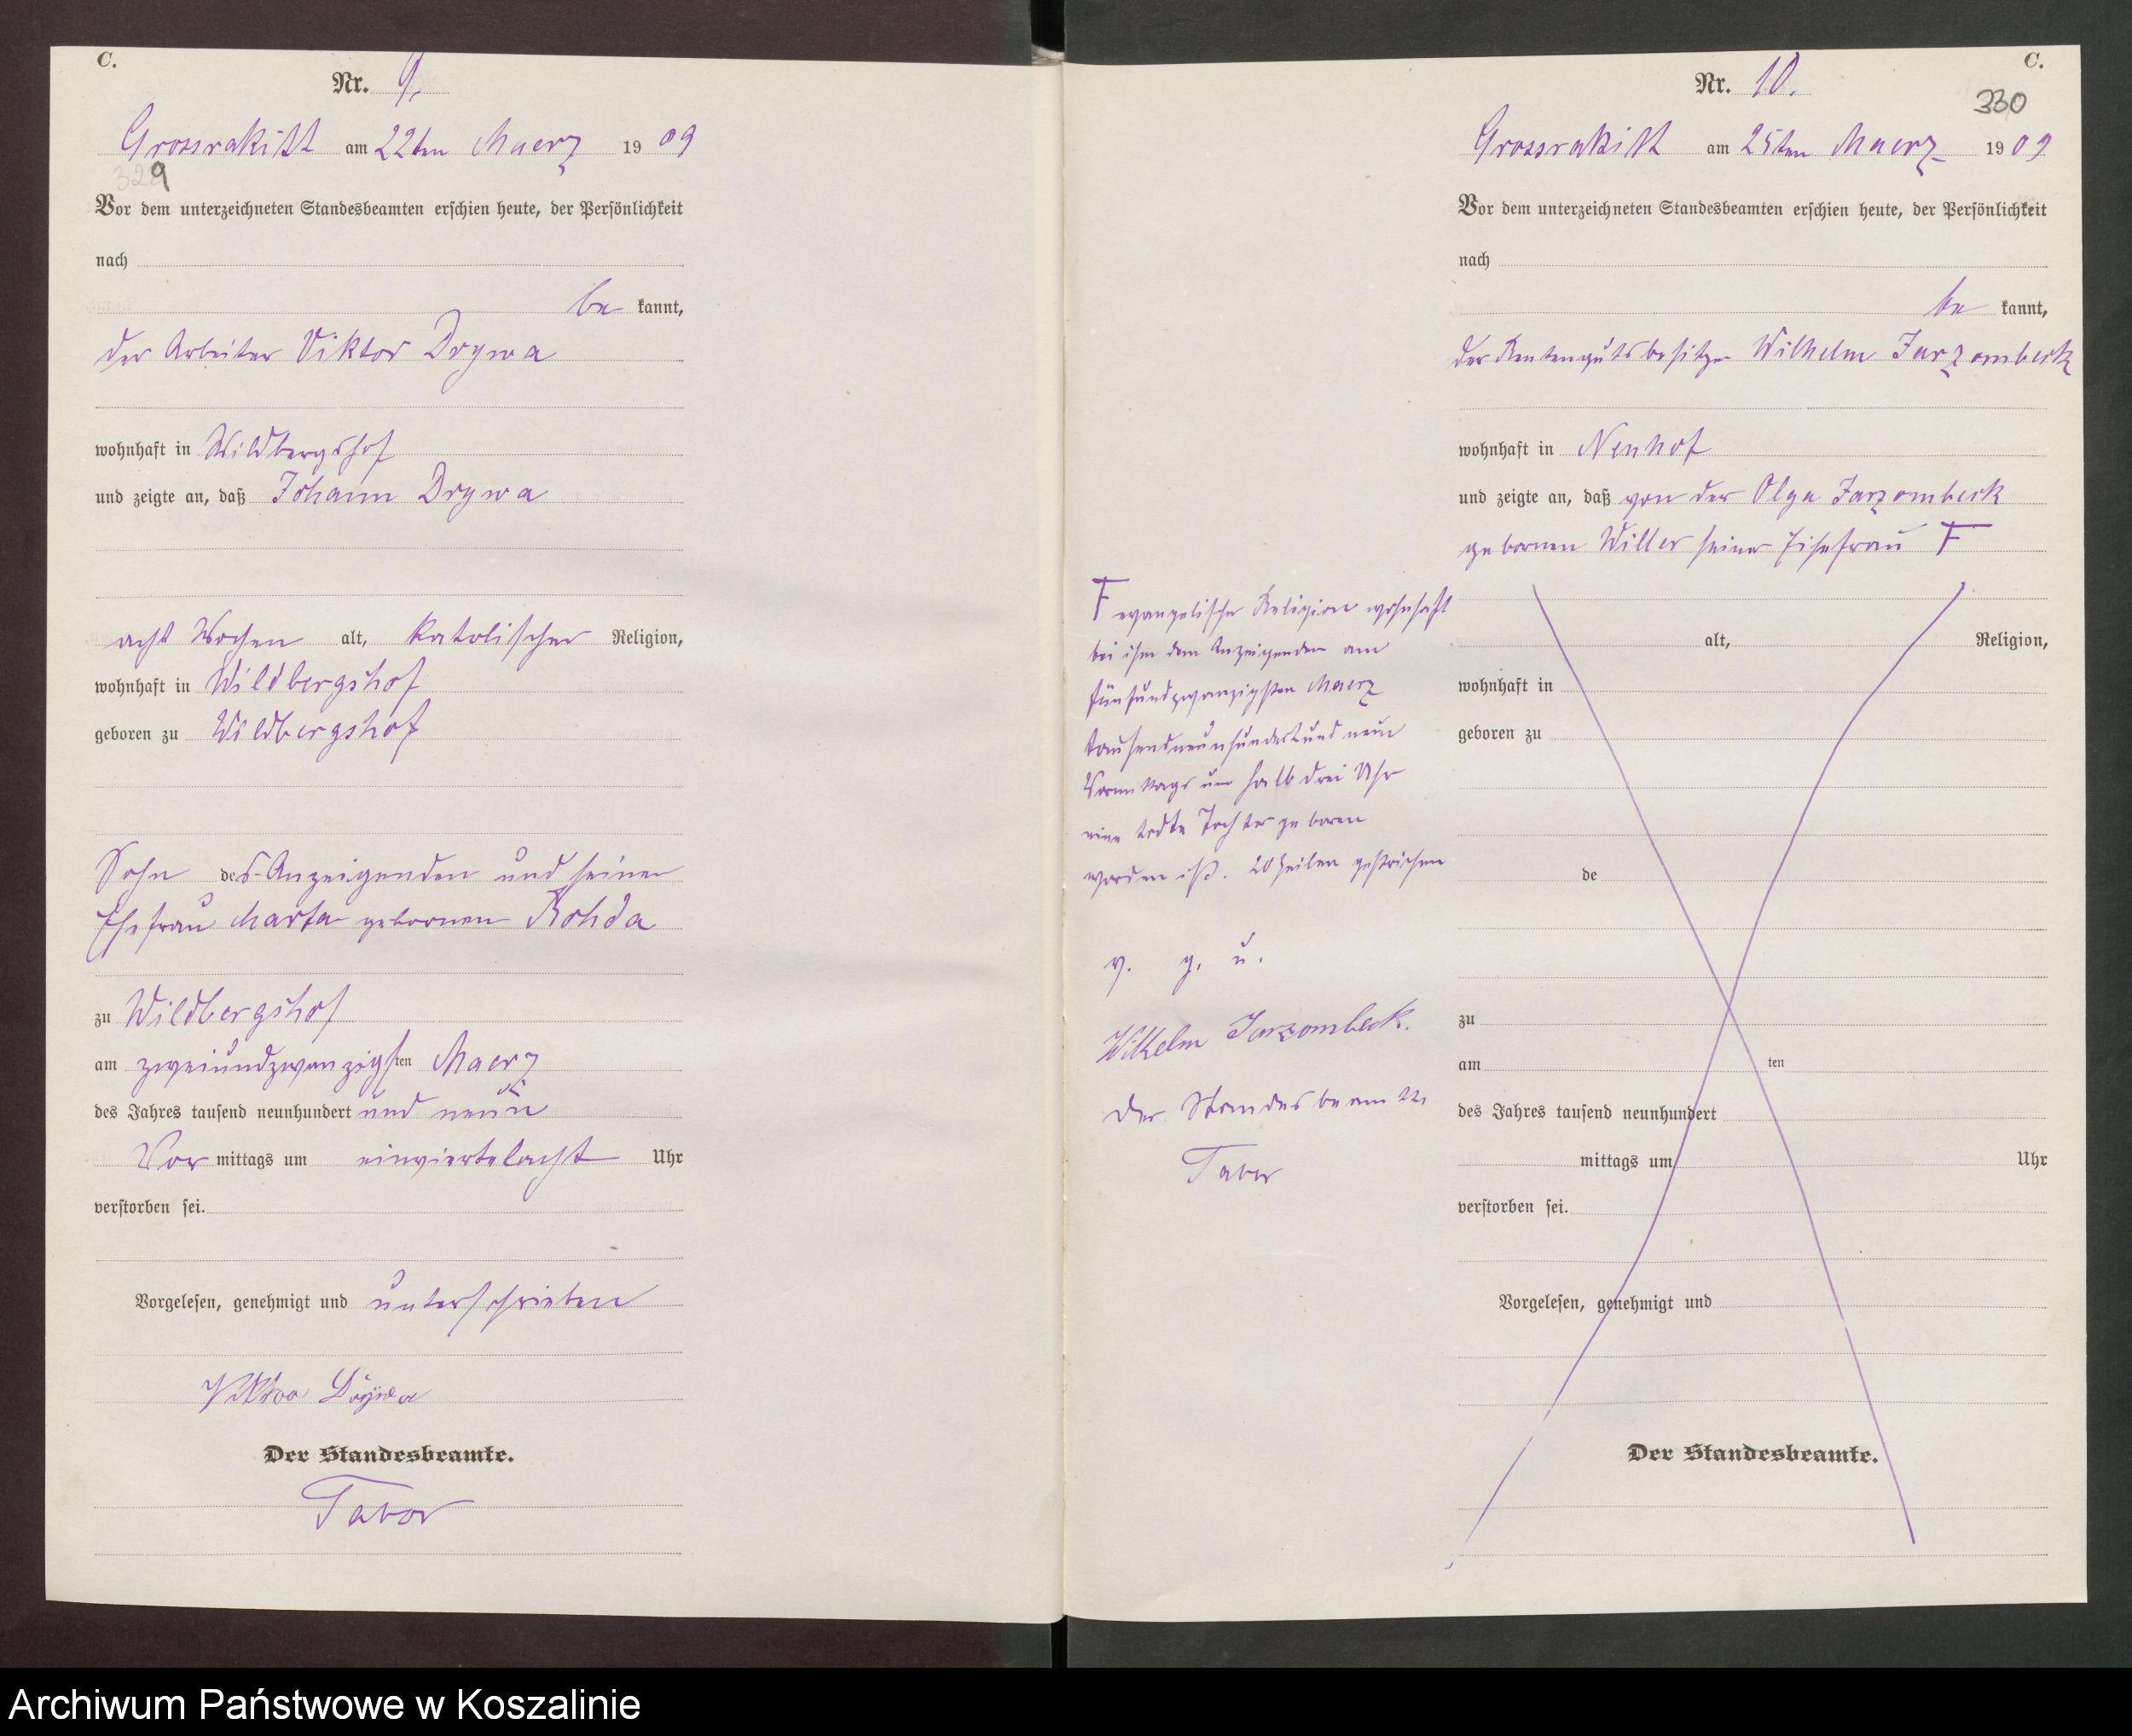 C.
Nr. 9.
Grossrakitt am 22ten Maerz 1909
329
Vor dem unterzeichneten Standesbeamten erschien heute, der Persönlichkeit
nach
be kannt,
der Arbeiter Viktor Drywa
wohnhaft in Wildbergshof
und zeigte an, daß Johann Drywa
acht Wochen alt, katolischer Religion,
wohnhaft in Wildbergshof
geboren zu Wildbergshof
Sohn des Anzeigenden und seiner
Ehefrau Marta gebornen Rohda
zu Wildbergshof
am zweiundzwanzigsten Maerz
des Jahres tausend neunhundert und neun
Vor mittags um einviertelacht Uhr
verstorben sei.
Vorgelesen, genehmigt und unterschrieben
Viktor Drywa
Der Standesbeamte.
Tabor
C.
Nr. 10.
330
Grossrakitt am 25ten Maerz 1909
Vor dem unterzeichneten Standesbeamten erschien heute, der Persönlichkeit
nach
be kannt,
der Rentengutsbesitzer Wilhelm Jarzombeck
wohnhaft in Neuhof
und zeigte an, daß von der Olga Jarzombeck
gebornen Willer seiner Ehefrau F
F evangelischer Religion wohnhaft
bei ihm dem Anzeigenden am
fünfundzwanzigsten Maerz
tausendneunhundertundneun
Vormittags um halb drei Uhr
eine todte Tochter geboren
worden ist. 20 Zeilen gestrichen
v. g. u.
Wilhelm Jarzombeck.
Der Standesbeamte
Tabor
alt, Religion,
wohnhaft in
geboren zu
de
zu
am ten
des Jahres tausend neunhundert
mittags um Uhr
verstorben sei.
Vorgelesen, genehmigt und
Der Standesbeamte.
Archiwum Państwowe w Koszalinie